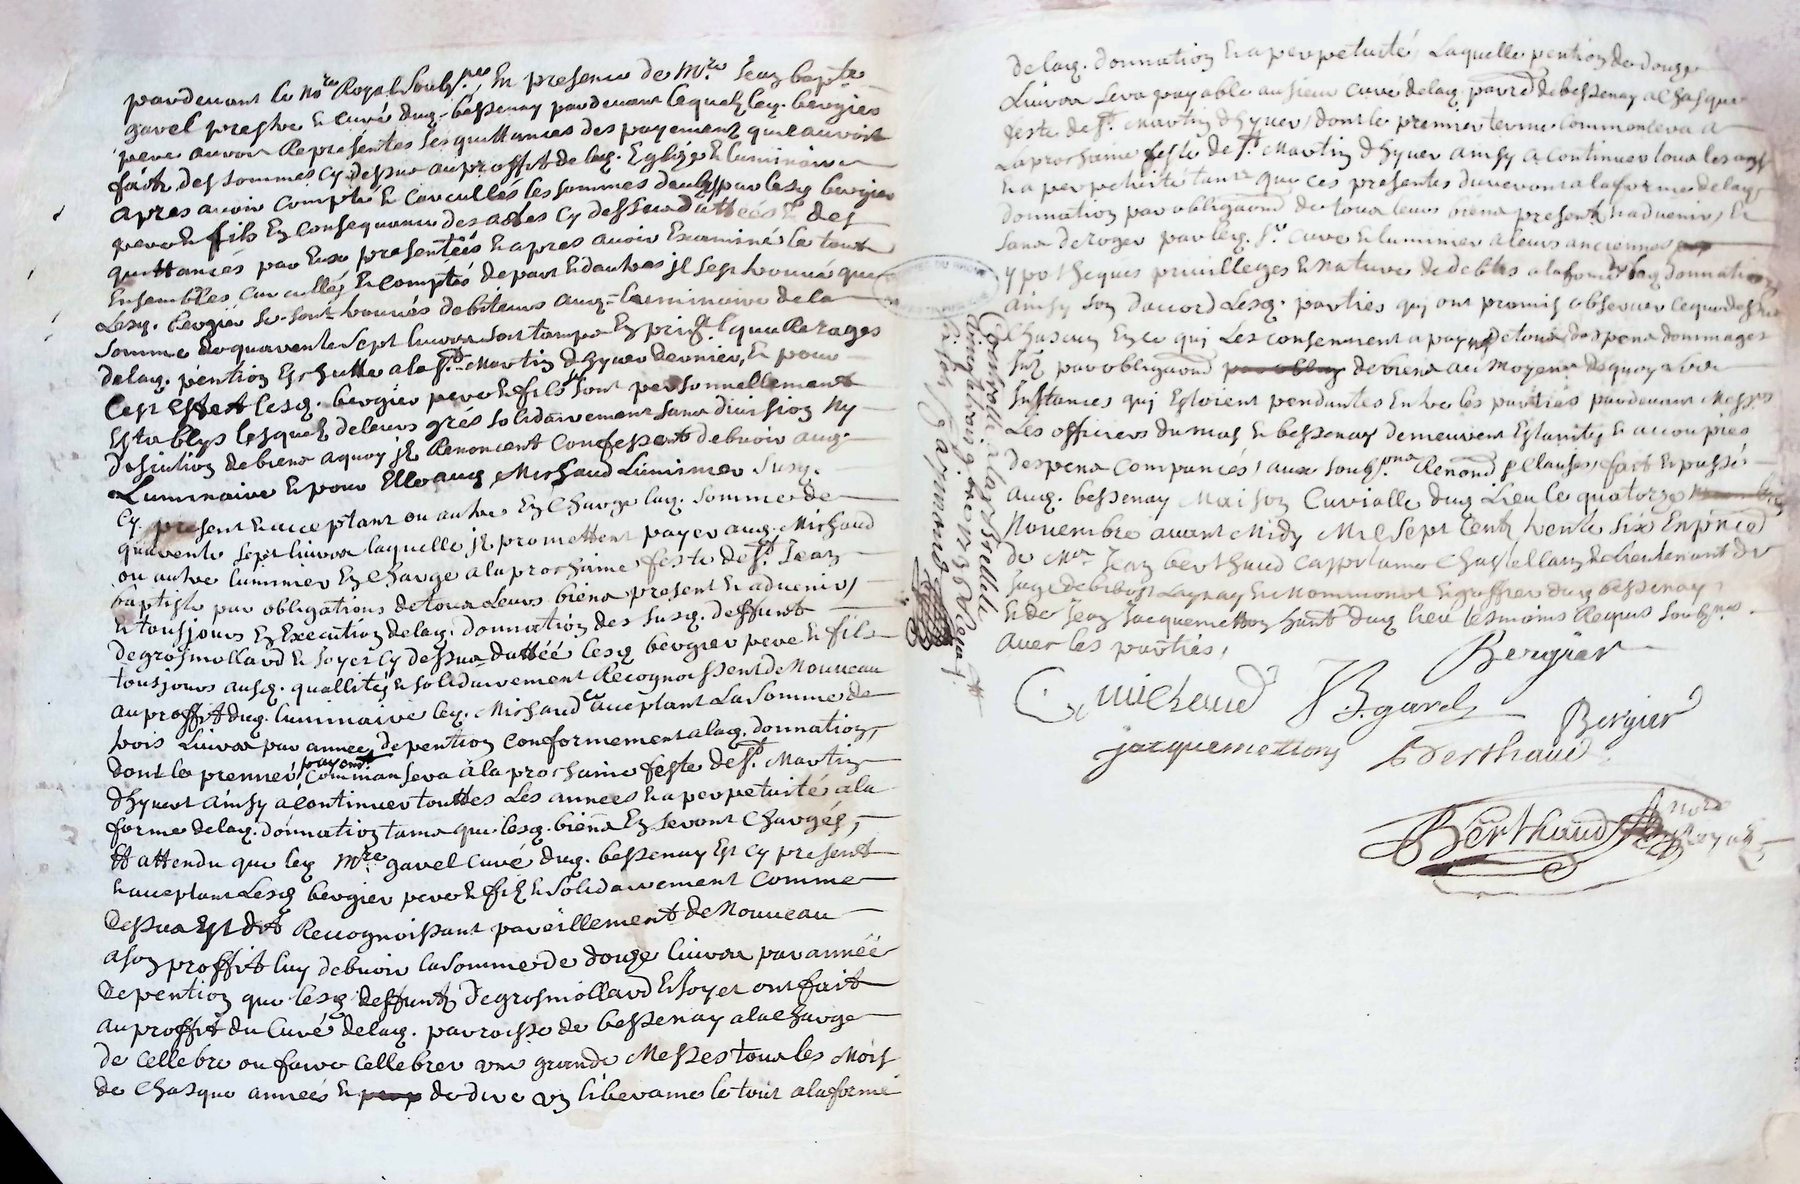 pardevant le Nore Royal soubs.né, En presence de Mre. Jean bapte
gavel prestre & Curé dug. bessenay pardevant lequel ley. bergier
pere auroit Representés les quittances des payement quil auroit
fait des sommes cy dessus au proffit de lag. Eglize & luminaire
apres avoir compté & Carcullés les sommes deubs par lesg bergier
pere & fils En consequance des actes cy dessus dattés & des
quittances par Eux presentéés & apres avoir Examiné le tout
Ensembles, carcullés & comptés de part & dautres jl sest trouvé que
Lesg. bergier se sont trouvés debiteurs aug= luminaire de la
somme de quarente sept livres sont tampr En prin.l que Rerages
delag. pention Eschutte a la st. Martin dhyver dernier, & pour
Cest Effet lesg. bergier pere & fils sont personnellement
Establys lesquels de leurs grés solidairement sans division ny
discution de biens a quoy jls Renoncent Confessent debvoir aug.
Luminaire & pour Elle aug Michaud Luminier susg.
Cy present & acceptant ou autre En charge lag. somme de
quarente sept livres laquelle jls promettent payer aug. Michaud
ou autre luminier En charge a la prochaine feste de st. Jean
baptiste par obligations de tous Leurs biens present & advenir,
& tousjours En Execution delag. donnation des susg. deffunt
Degrosmollard & soyer cy dessus dattéé lesg bergier pere & fils
tousjours ausg. quallités & solidairement Recognoissent de Nouveau
au proffit dug. luminaire ley. Michaud acceptant La somme de
trois Livres par année de pention conformement a lag. donnation,
dont le premier payemt. Commansera a la prochaine feste de st. Martin
dhyvert ainsy a continuer touttes Les années & a perpetuité a la
forme delag. donnation tams que lesg. biens En seront Chargés,
Et attendu que ley Mre gavel curé dug. bessenay Est cy present
& acceptant Lesg bergier pere & fils & solidairement Comme
Dessus Est dit Recognoissant pareillement de Nouveau
a son proffit luy debvoir la somme de douze livres par année
De pention que lesg deffunts Degrosmollard & soyer ont fait
au proffit du Curé delag. parroisse de bessenay a la charge
de cellebre ou faire cellebrer une grande Messes tous les Mois
de Chasque années & perp de dire un liberames le tout a la forme
delag. donnation & a perpetuité, Laquelle pention de douze
Livres sera payable au sieur curé delag. parr.e de bessenay a chasque
feste de st. Martin dhyver, dont le premier terme commencera a
La prochaine feste de st. Martin dhyver ainsy a continuer tous les ans
& a perpetuité tant que ces presentes dureront a la forme delag
donnation par obligaons de tous leurs biens present & advenir, Et
sans deroger par leg. sr. Curé & luminier a leurs anciennes
ypotheques privilleges & Nature de debtes a la forme de lag donnation
ainsy son d'accord Lesg. parties qui ont promis observer ce que dessus
Chascun En ce qui Les consernent a payne de tous despens dommages
Int. par obligaons par oblig de biens au Moyens de quoy a ver
Instances qui Estoient pendantes Entre les parties pardevant Messrs
Les officiers du mas & bessenay demeurent Estaintes & accoupies
despens compancés, aux soubs.ons Renond. & Clauses, fait & passé
aug. bessenay Maison Curialle dug Lieu le quatorze Novembre
Novembre avant Midy Mil sept Cent trente six En pnce
de Me. Jean berthaud Cappitaine Chastellain & Lieutenant de
Juge de bibost Laynay & & greffier dug bessenay,
& de Jean Jacquemetton hant. dug lieu tesmoins Requis soubs.nés
avec les parties,
Bergier
C. michaud J B. gavel Bergier
jacquemettons Berthaud
Berthaud Nore Royal